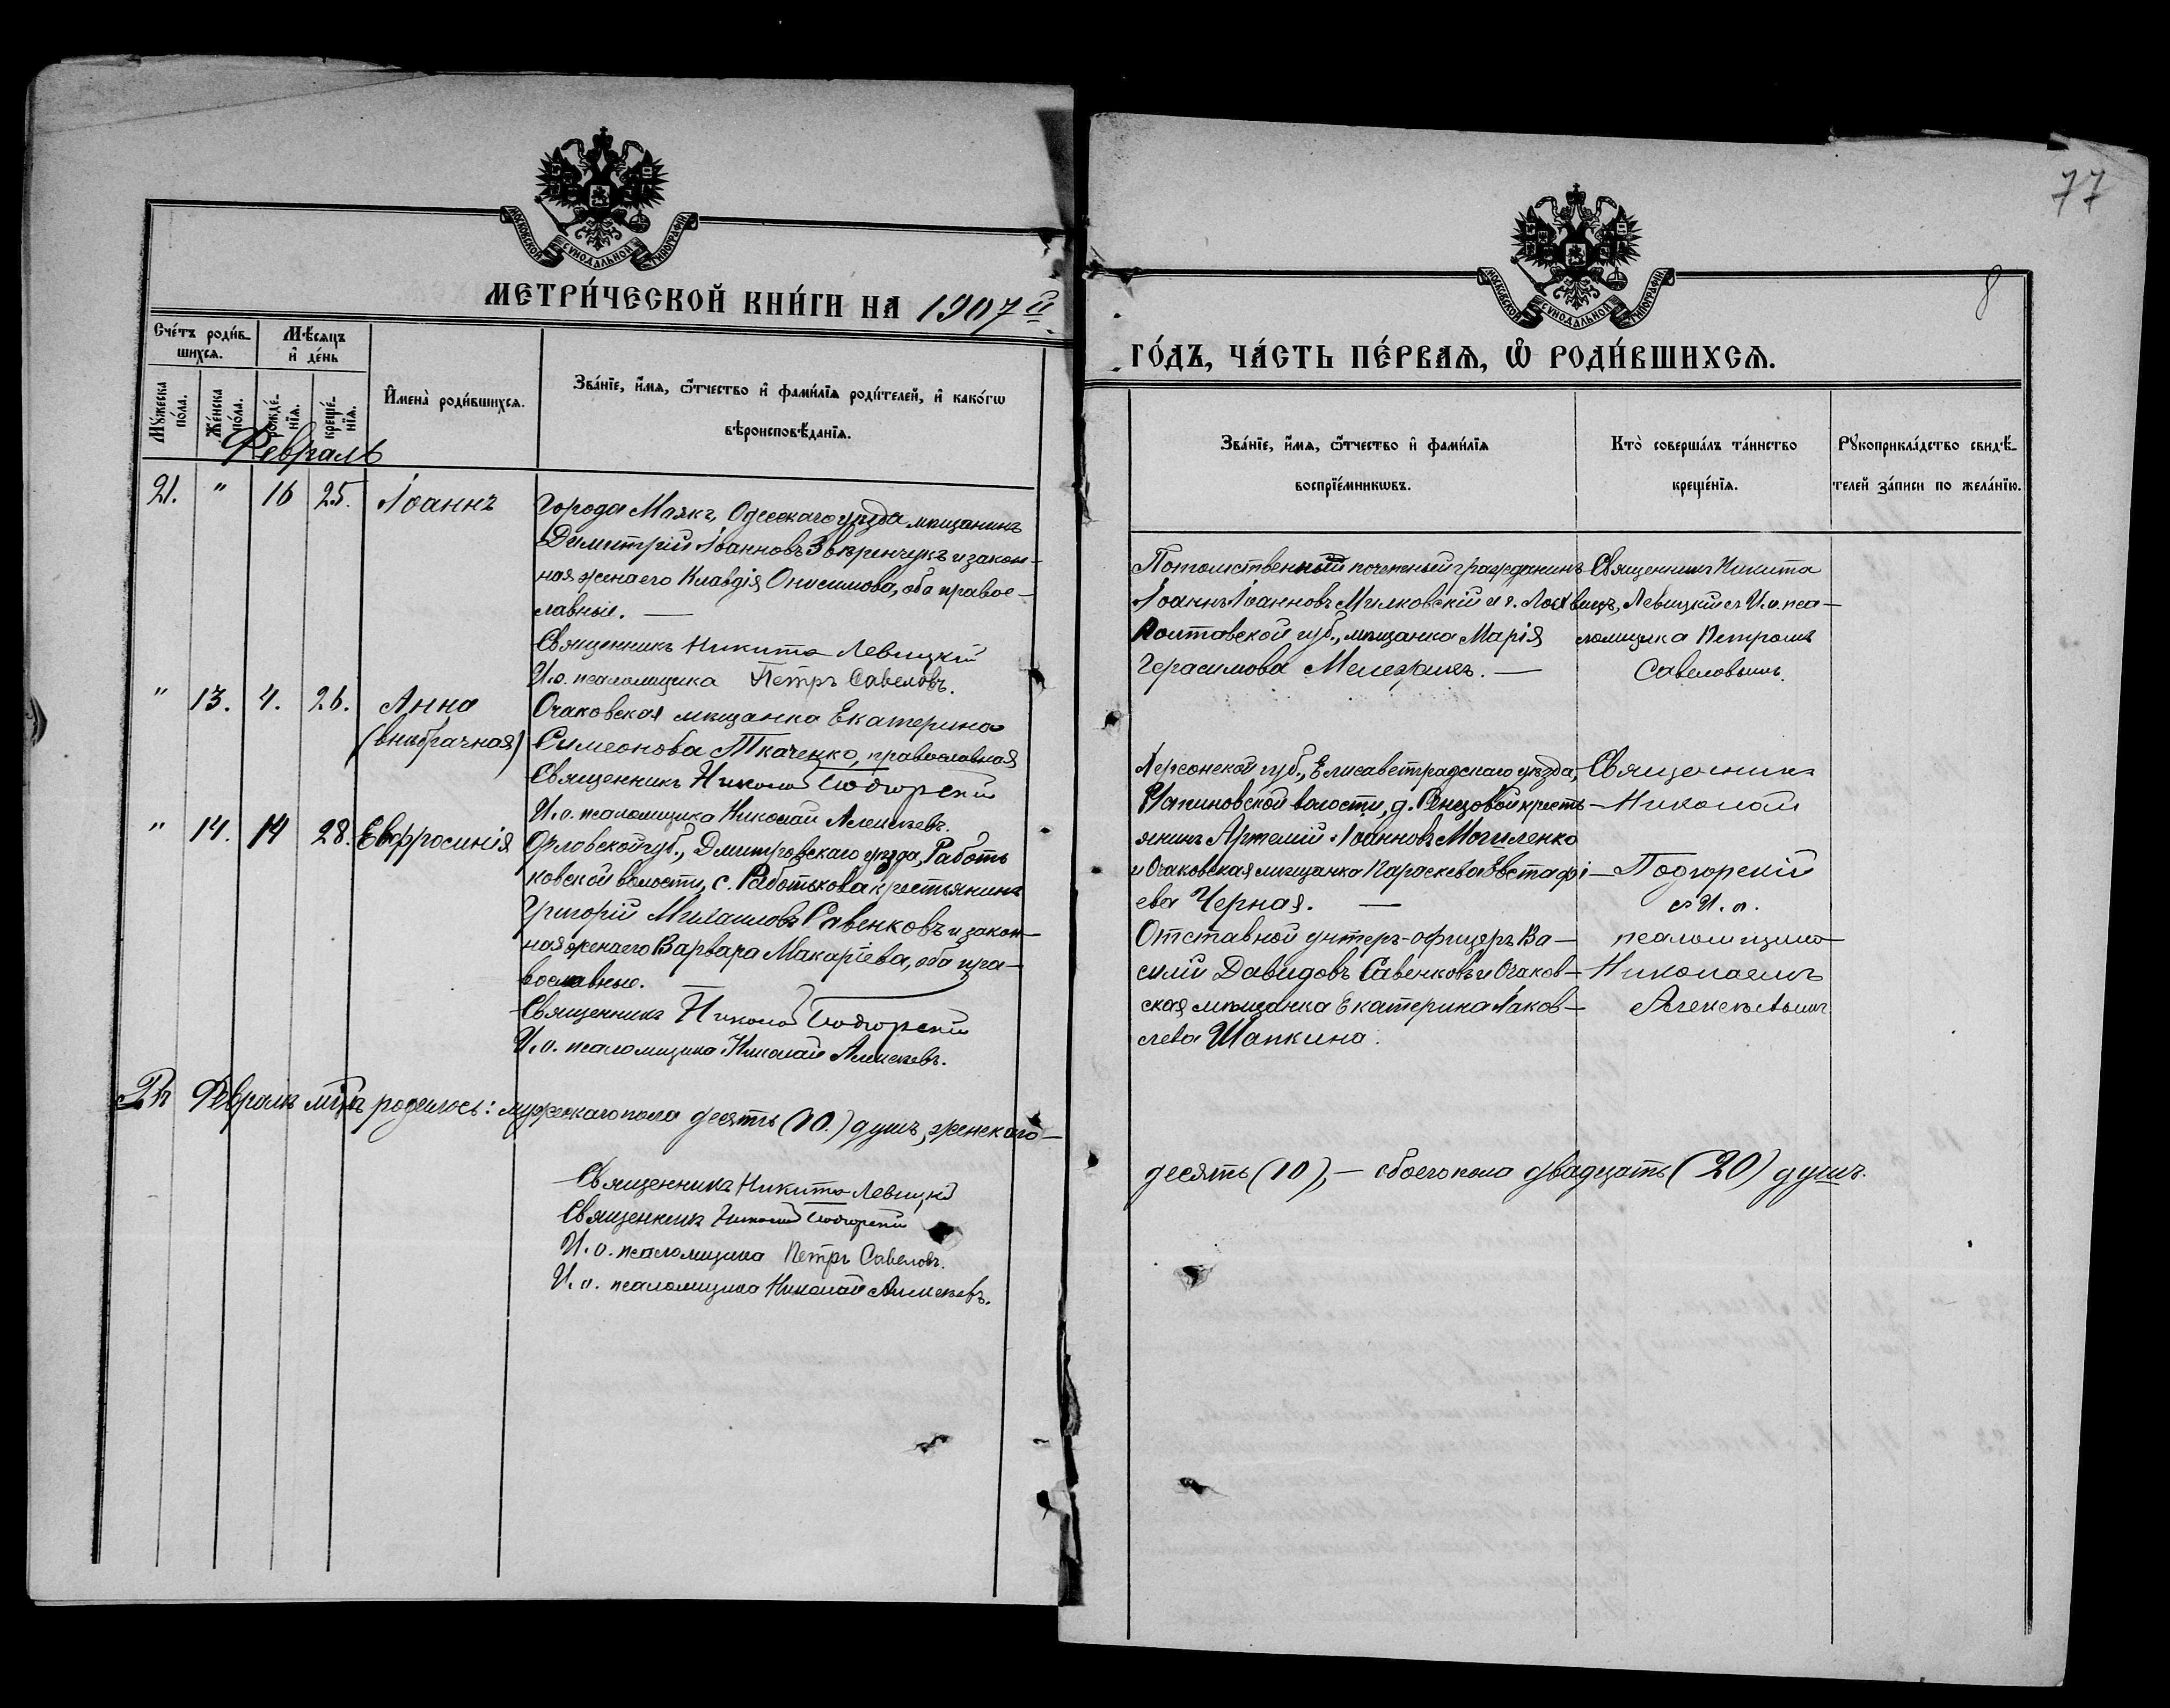 МОСКОВСКОЙ СУНОДАЛЬНОЙ ТИПОГРАФІИ
МЕТРИ́ЧЕСКОЙ КНИ́ГИ НА 1907 й
Сче́тъ роди́в-
шихсѧ.
Мѣ́сѧцъ
и҆ де́нь
Мꙋ́жеска
по́ла.
Же́нска
по́ла.
рожде́-
нїѧ.
креще́-
нїѧ.
И҆мена̀ роди́вшихсѧ.
Зва́нїе, и҆́мѧ, ѻ҆́тчество и҆ фами́лїѧ роди́телей, и҆ како́гѡ
вѣроисповѣ́данїѧ.
Февраль
21. " 16 25. Іоаннъ
Города Маякъ, Одесскаго уѣзда мѣщанинъ
Димитрій Іоанновъ Звѣренчукъ и закон-
ная жена его Клавдія Онисимова, оба правос-
лавные. —
Священникъ Никита Левицкій
И.о. псаломщика Петръ Савеловъ.
" 13. 4. 26. Анна
(внѣбрачная)
Очаковская мѣщанка Екатерина
Симеонова Ткаченко, православная
Священникъ Николай Подгорскій
И.о. псаломщика Николай Алексѣевъ.
" 14. 14 28. Евфросинія
Орловской губ., Дмитровскаго уѣзда, Работь
ковской волости, с. Работькова крестьянинъ
Григорій Михаиловъ Савенковъ и закон-
ная жена его Варвара Макаріева, оба пра-
вославные. —
Священникъ Николай Подгорскій
И.о. псаломщика Николай Алексѣевъ.
Въ Февралѣ мцѣ родилось: мужескаго пола десять (10.) душъ, женскаго—
Священникъ Никита Левицкій
Священникъ Николай Подгорскій
И.о. псаломщика Петръ Савеловъ.
И.о. псаломщика Николай Алексѣевъ.
77
8
МОСКОВСКОЙ СУНОДАЛЬНОЙ ТИПОГРАФІИ
ГО́ДЪ, ЧА́СТЬ ПЕ́РВАѦ, Ѡ҆ РОДИ́ВШИХСѦ.
Зва́нїе, и҆́мѧ, ѻ҆́тчество и҆ фами́лїѧ
воспрїе́мникѡвъ.
Кто̀ соверша́лъ та́инство
креще́нїѧ.
Рꙋкоприкла́дство свидѣ́-
телей за́писи по жела́нїю.
Потомственный почетный гражданинъ
Іоаннъ Іоанновъ Милковскій и г. Лохвицъ,
Полтавской губ., мѣщанка Марія
Герасимова Мележикъ. —
Священникъ Никита
Левицкій съ И.о. пса-
ломщика Петромъ
Савеловымъ.
Херсонской губ., Елисаветградскаго уѣзда,
волости, д. кресть-
янинъ Артемій Іоанновъ Могиленко
и Очаковская мѣщанка Параскева Евстафі-
ева Черная. —
Отставной унтеръ-офицеръ Ва-
силій Давидовъ Савенковъ и Очаков-
ская мѣщанка Екатерина Іаков-
лева Шапкина.
Священникъ
Николай
Подгорскій
съ И.о.
псаломщика
Николаемъ
Алексѣевымъ.
десять (10), — обоего пола двадцать (20) душъ.